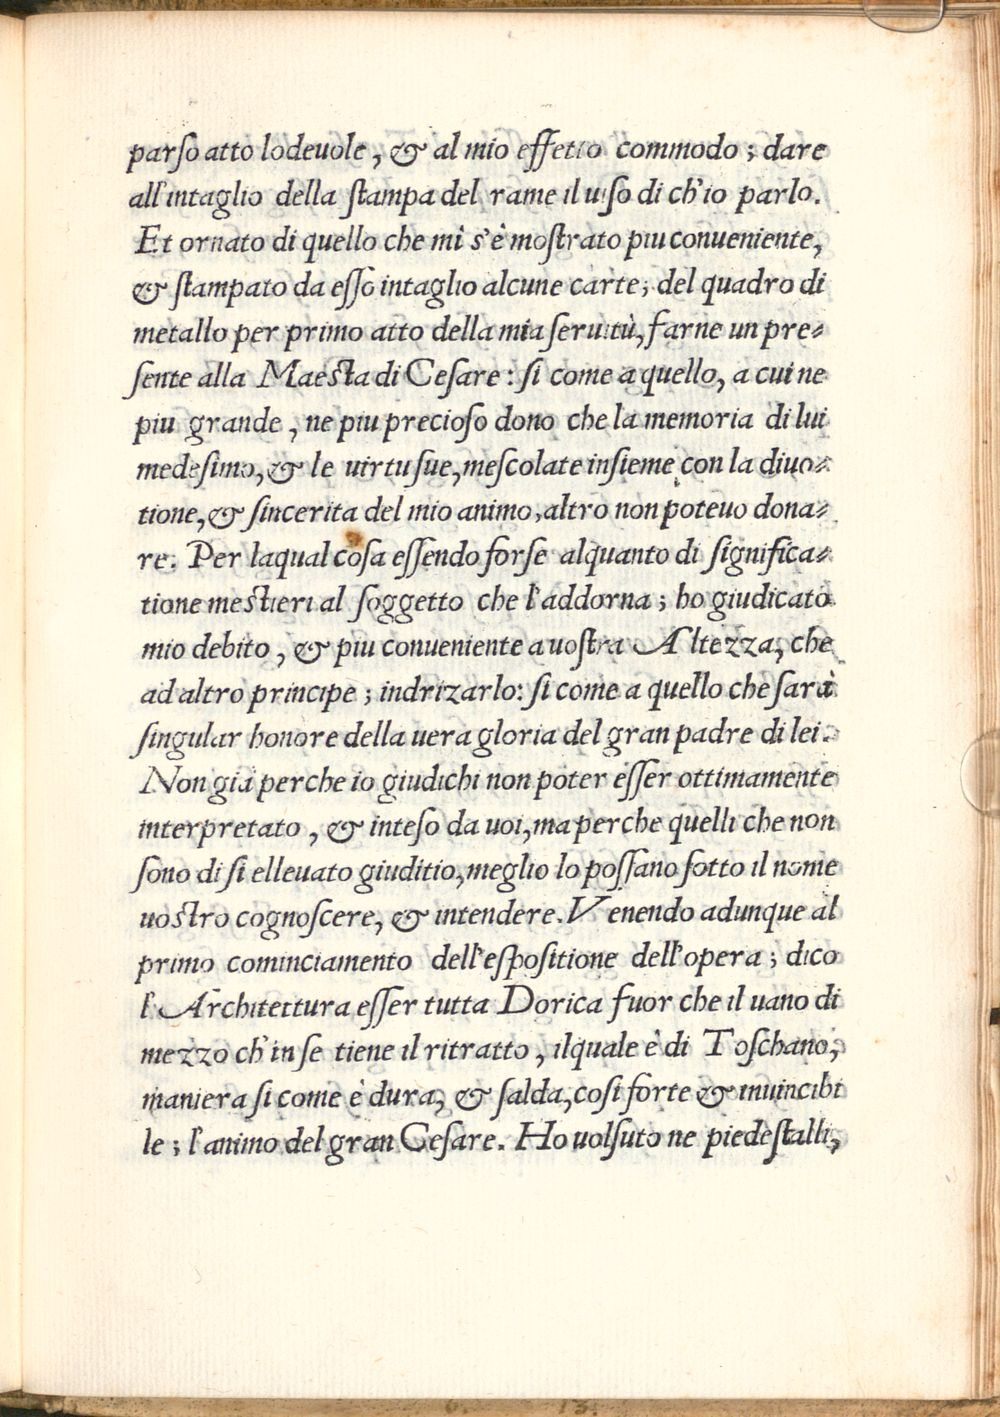 parſo atto lodeuole, & al mio effetto commodo; dare
all'intaglio della ſtampa del rame il uiſo di ch'io parlo.
Et ornato di quello che mi s'è moſtrato piu conueniente,
& ſtampato da eſſo intaglio alcune carte; del quadro di
metallo per primo atto della mia ſeruitù, farne un pre⸗
ſente alla Maeſta di Ceſare: ſi come a quello, a cui ne
piu grande, ne piu precioſo dono che la memoria di lui
medeſimo, & le uirtu ſue, meſcolate inſieme con la diuo⸗
tione, & ſincerita del mio animo, altro non poteuo dona⸗
re. Per laqual coſa eſſendo forſe alquanto di ſignifica⸗
tione meſtieri al ſoggetto che l'addorna; ho giudicato
mio debito, & piu conueniente a uoſtra Altezza, che
ad altro principe; indrizarlo: ſi come a quello che ſarà
ſingular honore della uera gloria del gran padre di lei.
Non già perche io giudichi non poter eſſer ottimamente
interpretato, & inteſo da uoi, ma perche quelli che non
ſono di ſi elleuato giuditio, meglio lo poſſano ſotto il nome
uoſtro cognoſcere, & intendere. Venendo adunque al
primo cominciamento dell'eſpoſitione dell'opera; dico
l'Architettura eſſer tutta Dorica fuor che il uano di
mezzo ch'in ſe tiene il ritratto, ilquale è di Toſchano,
maniera ſi come è dura, & ſalda, coſi forte & inuincibi
le; l'animo del gran Ceſare. Ho uolſuto ne piedeſtalli,